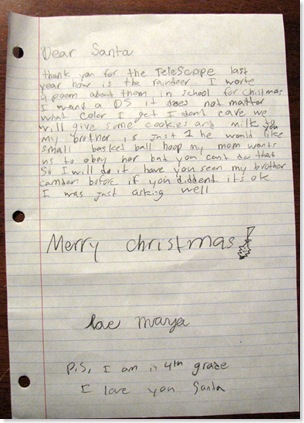 Dear Santa
thank you for the TeleScope last
year how is the reindeer I worte
a poem about them in school for chistmas
I want a DS it does not matter
what color I get I dont care we
will give some cookies and milk to you
my brother is his is 2 he would like
small basket ball hoop my mom wants
us to obay her but you cant do that
So I will do it have you seen my brother
camdon bifore if you diddent its ok
I was just asking well
Merry christmas!
love maya
P.S, I am in 4th grade
I love you Santa